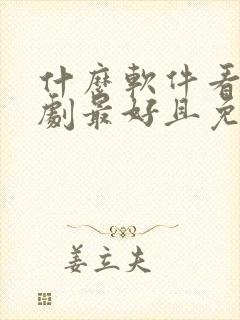 什麼軟件看
劇最好且免
姜立夫